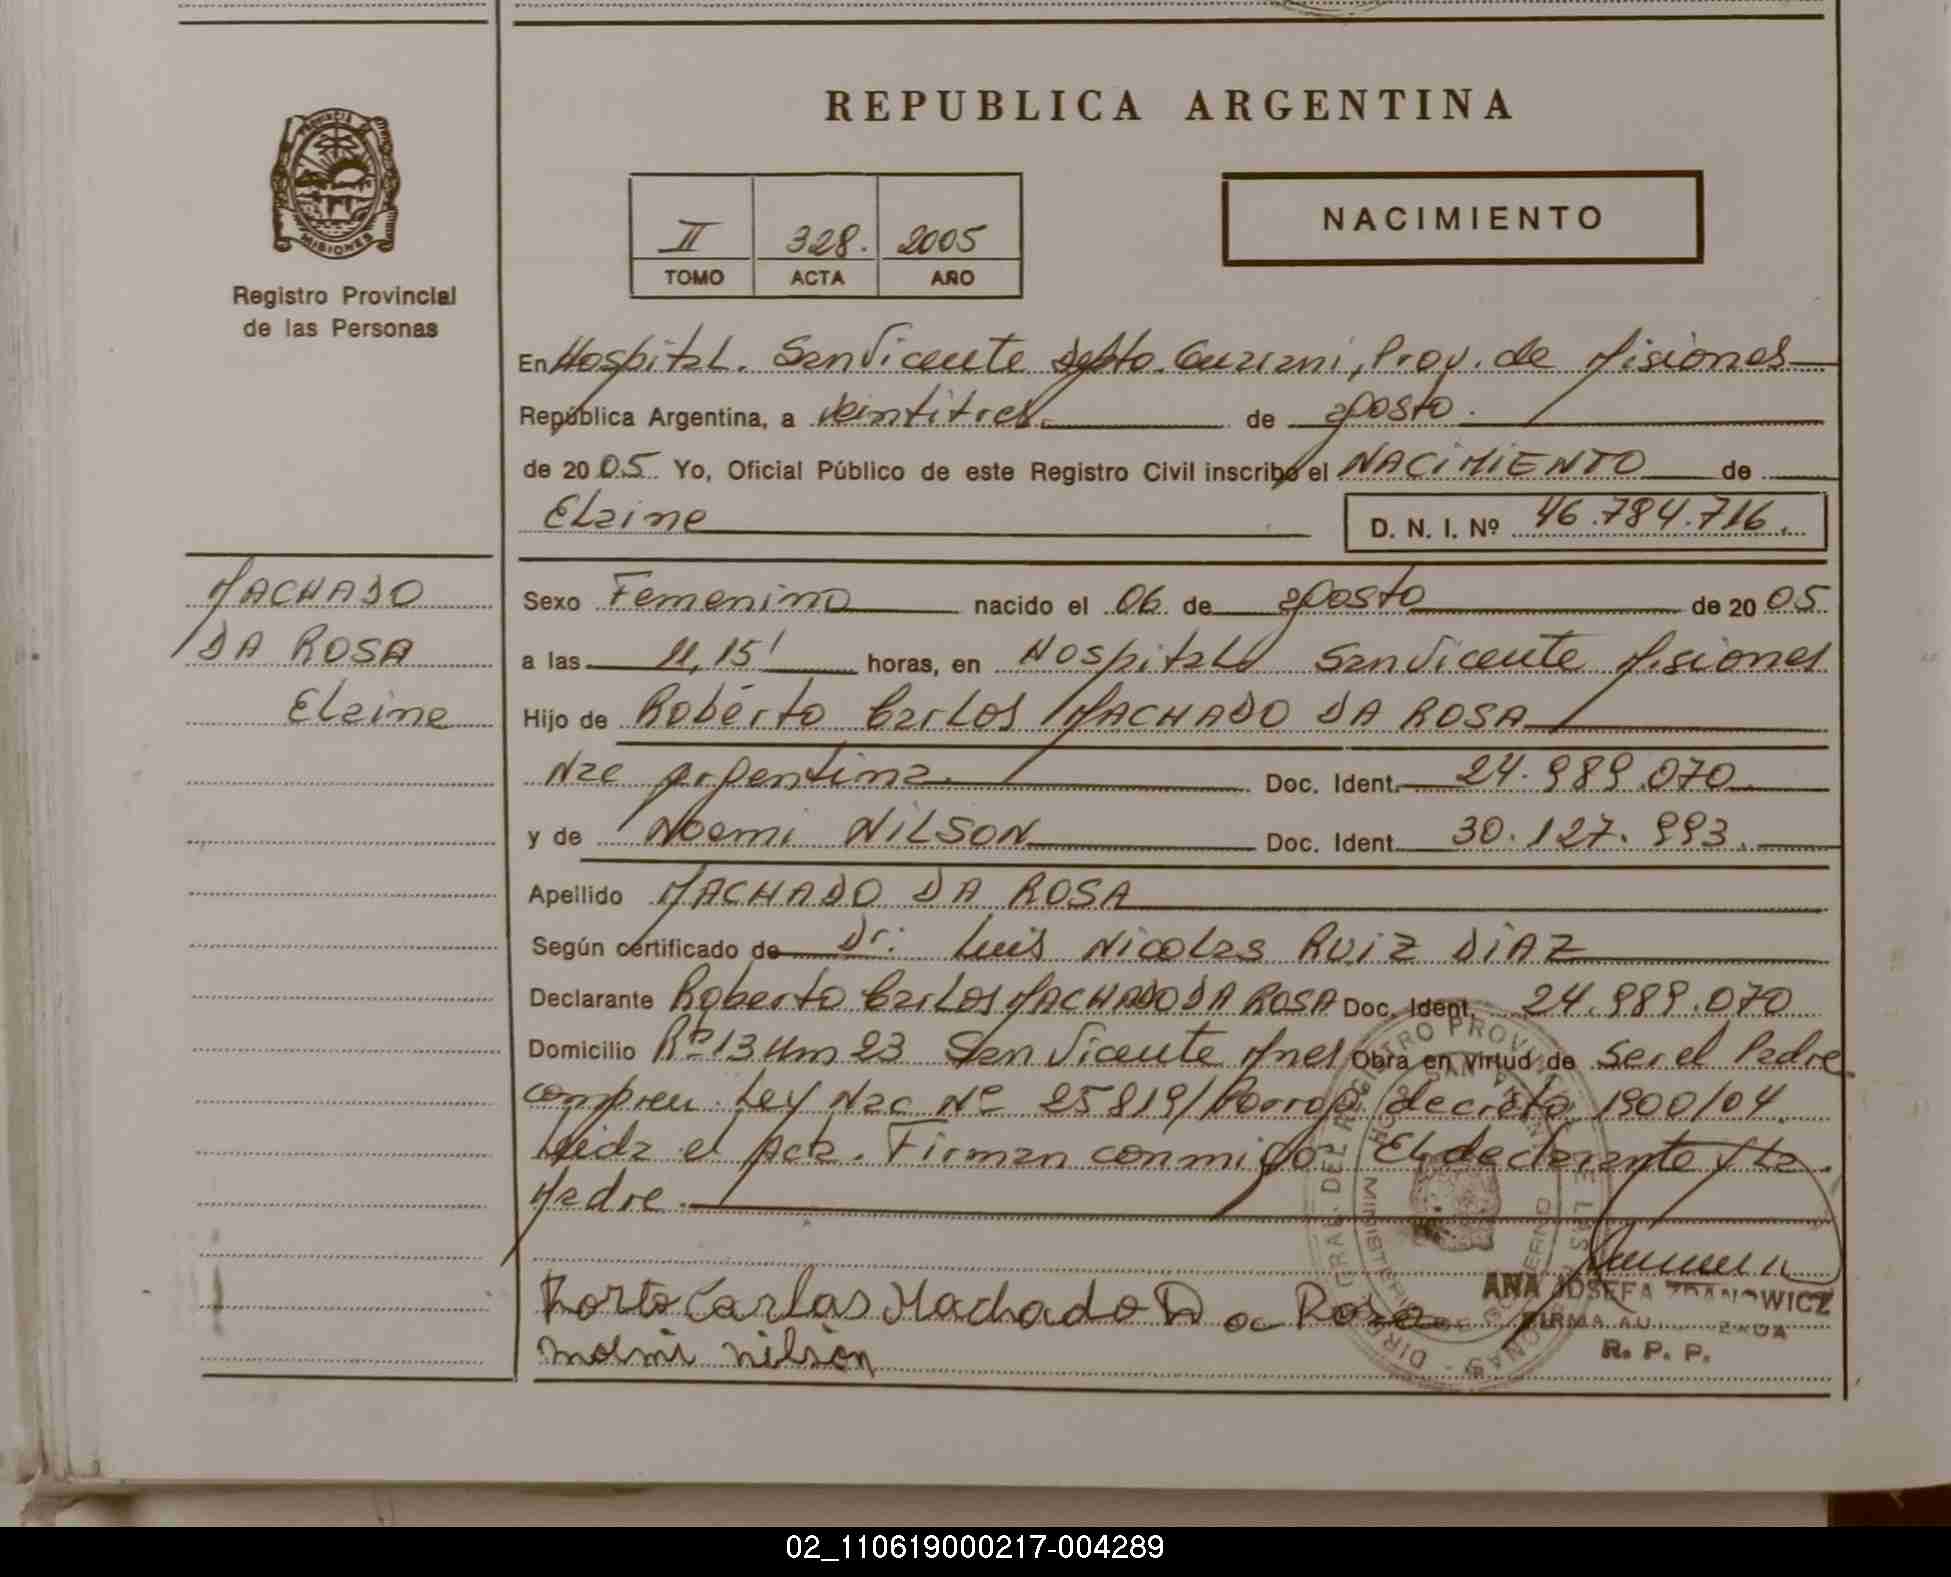 REPUBLICA ARGENTINA
PROVINCIA DE
MISIONES
Registro Provincial
de las Personas
II 328. 2005
TOMO ACTA AÑO
NACIMIENTO
En Hospital. San Vicente Depto. Guarani, Prov. de Misiones
República Argentina, a veintitres de agosto.
de 2005. Yo, Oficial Público de este Registro Civil inscribo el NACIMIENTO de
Elaine D. N. I. Nº 46.784.716.
MACHADO
DA ROSA
Elaine
Sexo Femenino nacido el 06 de agosto de 2005
a las 11,15' horas, en Hospital San Vicente Misiones
Hijo de Roberto Carlos MACHADO DA ROSA
Nac argentina. Doc. Ident. 24.989.070
y de Noemi NILSON Doc. Ident. 30.127.993.
Apellido MACHADO DA ROSA
Según certificado de Dr. Luis Nicolas RUIZ DIAZ
Declarante Roberto Carlos MACHADO DA ROSA Doc. Ident. 24.989.070
Domicilio Rª 13 Km 23 San Vicente Mnes Obra en virtud de Ser el Padre
compren. Ley Nac Nº 25819/Prorroga decreto 1900/04.
Leida el Acta. Firman conmigo El declarante y la
Madre.
Rorto Carlos Machado D a Rosa
noemi nilson
ANA JOSEFA ZDANOWICZ
FIRMA AU
R. P. P.
02_110619000217-004289